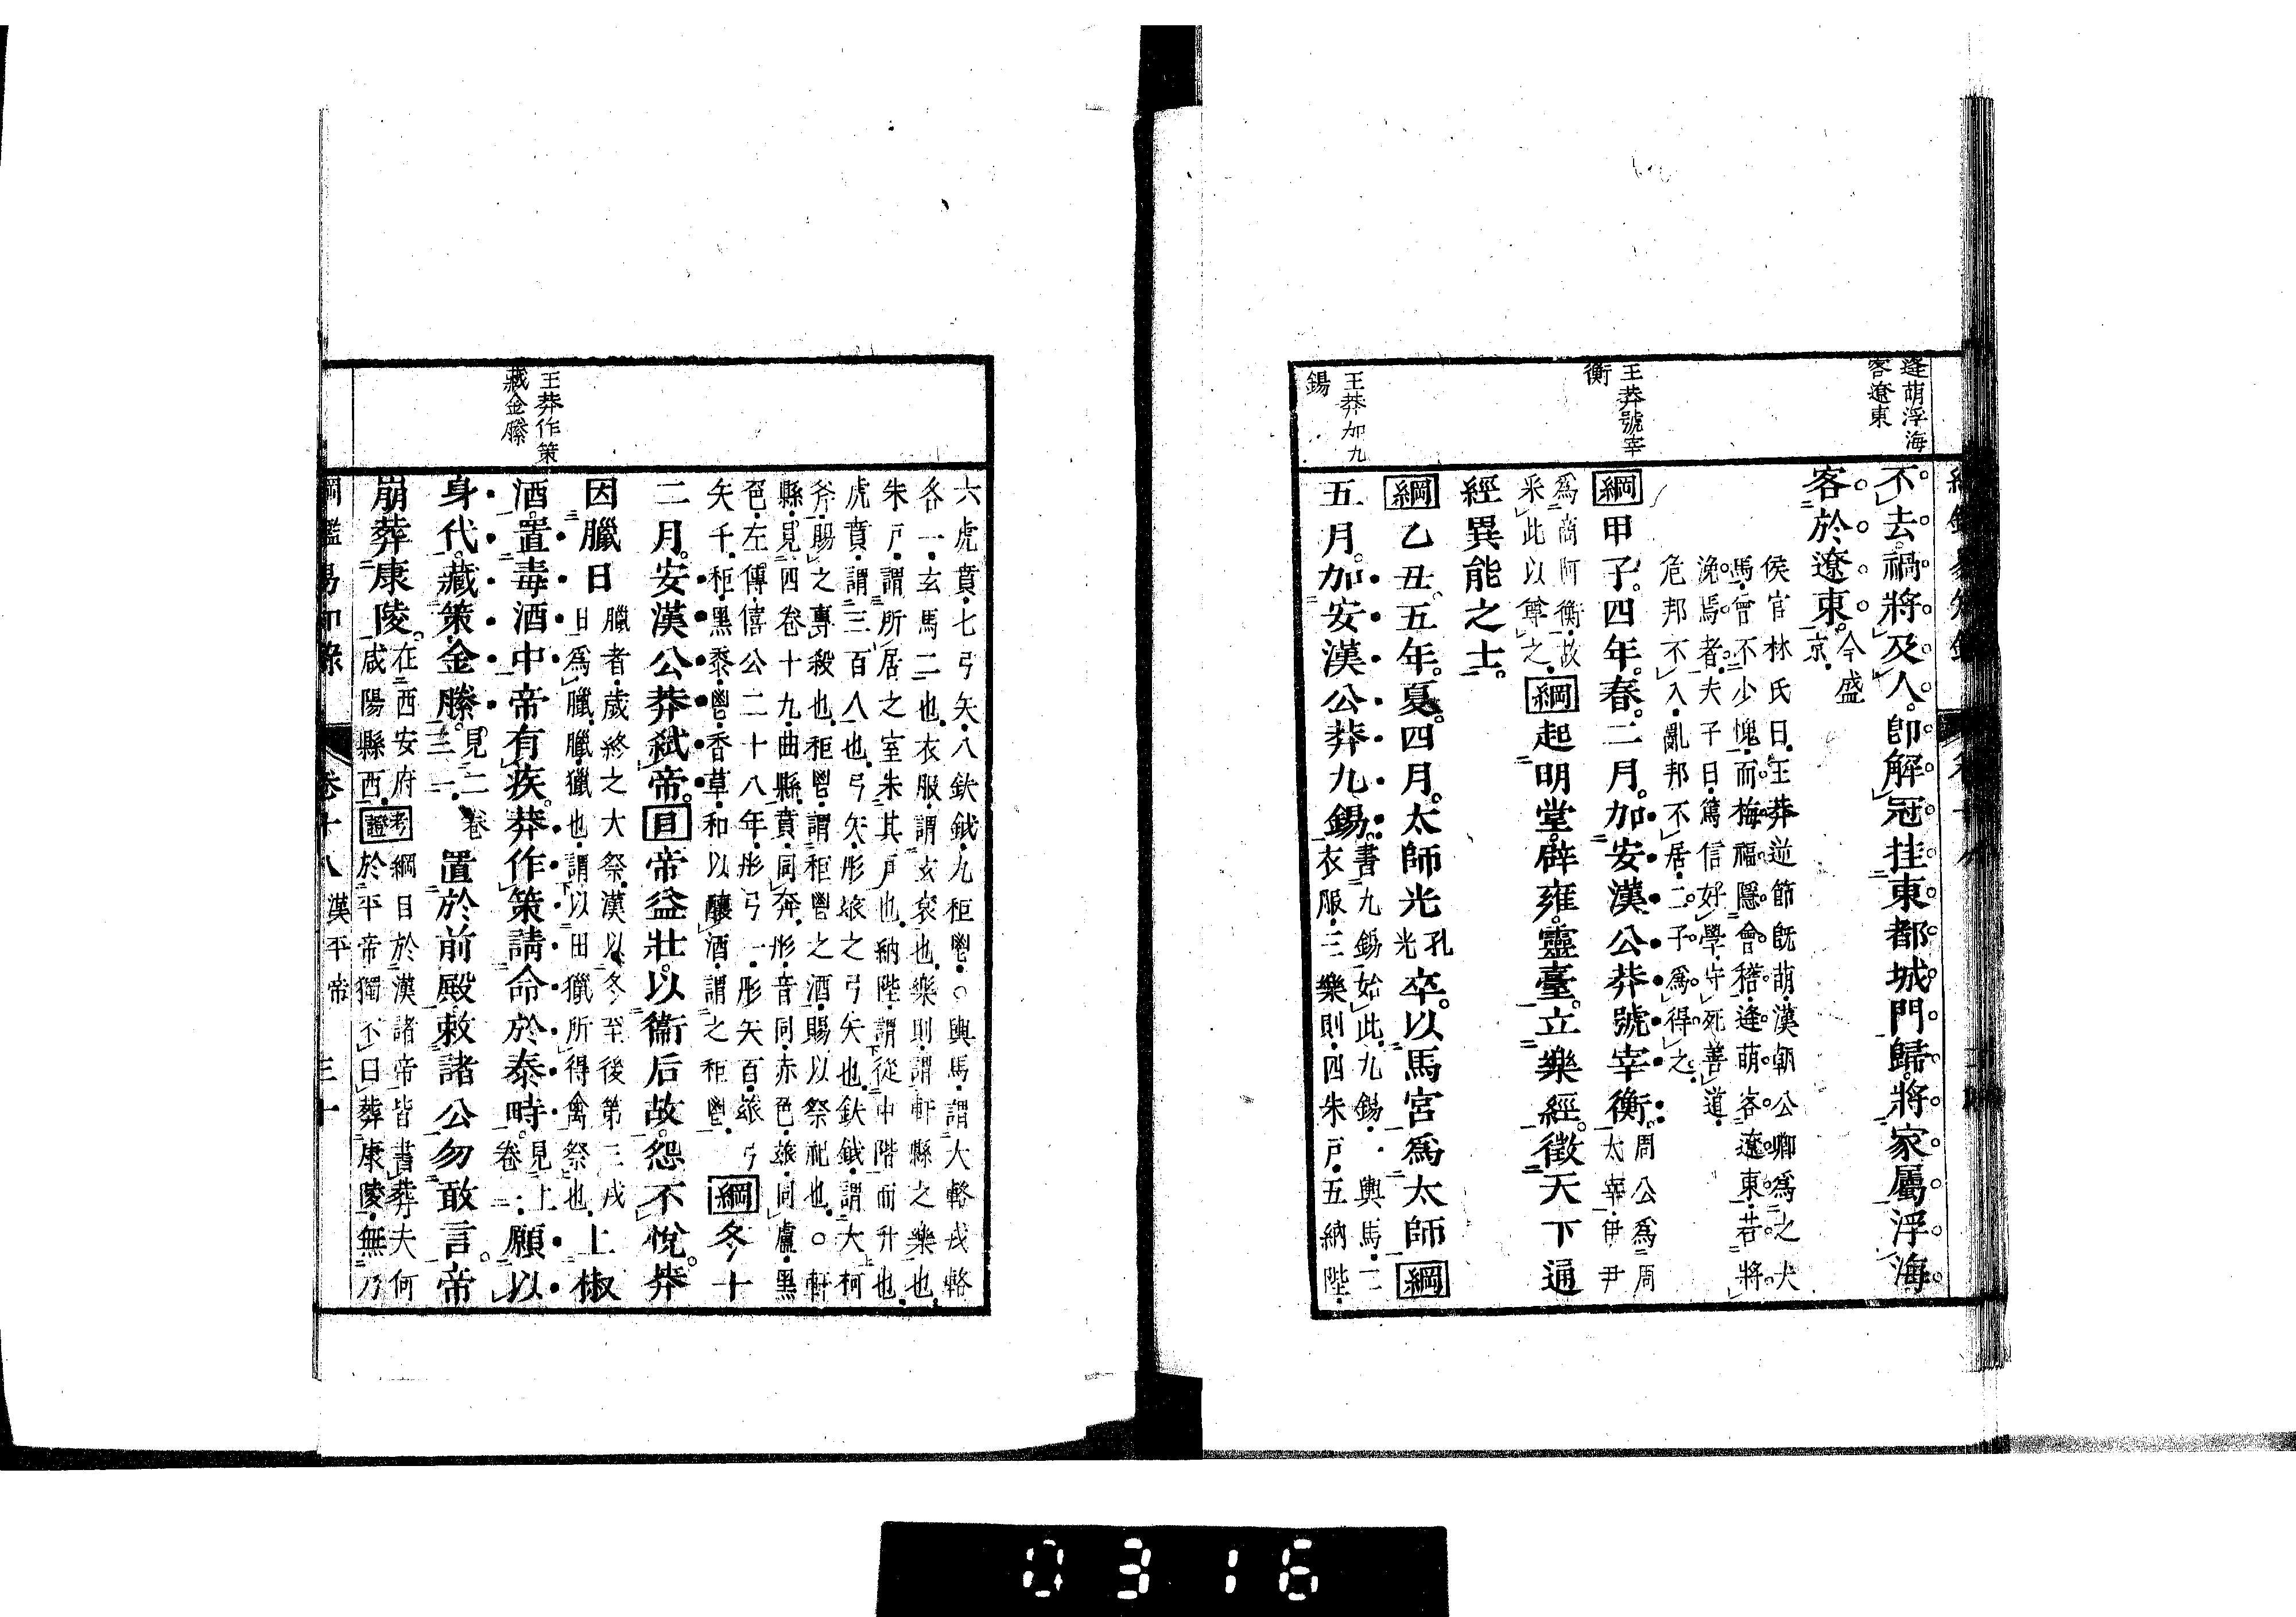 逄萌浮海
客遼東
不去禍將及人卽解冠挂東都城門歸將家屬浮海
客於遼東今盛
京
侯官林氏曰王莽逆節旣萌漢朝公卿爲之犬
馬曾不少愧而梅福隱會稽逄萌客遼東若將
浼焉者夫子曰篤信好學守死善道
危邦不入亂邦不居二子爲得之
王莽號宰
衡
綱甲子四年春二月加安漢公莽號宰衡周公爲周
太宰伊尹
爲商阿衡故
采此以尊之綱起明堂辟雍靈臺立樂經徵天下通
經異能之士
綱乙丑五年夏四月太師光孔
光卒以馬宮爲太師綱
王莽加九
錫
五月加安漢公莽九錫書九錫始此九錫一輿馬二
衣服三樂則四朱戸五納陛
六虎賁七弓矢八鈇鉞九秬鬯○輿馬謂大輅戎輅
各一玄馬二也衣服謂玄袞也樂則謂軒縣之樂也
朱戸謂所居之室朱其戸也納陛謂從中階而升也
虎賁謂三百人也弓矢彤玈之弓矢也鈇鉞謂大柯
斧賜之專殺也秬鬯謂秬鬯之酒賜以祭祀也○軒
縣見四卷十九曲縣賁同奔彤音同赤色玈同盧黑
色左傳僖公二十八年彤弓一彤矢百玈弓
矢千秬黑黍鬯香草和以釀酒謂之秬鬯綱冬十
二月安漢公莽弒帝目帝益壯以衞后故怨不悅莽
因臘日臘者歲終之大祭漢以冬至後第三戌
日爲臘臘獵也謂以田獵所得禽祭也上椒
王莽作策
藏金縢
酒置毒酒中帝有疾莽作策請命於泰畤見上
卷願以
身代藏策金縢見二卷
三一置於前殿敕諸公勿敢言帝
崩葬康陵在西安府
咸陽縣西考
證綱目於漢諸帝皆書葬夫何
於平帝獨不曰葬康陵無乃
綱鑑易知錄 卷十八 漢平帝 三十